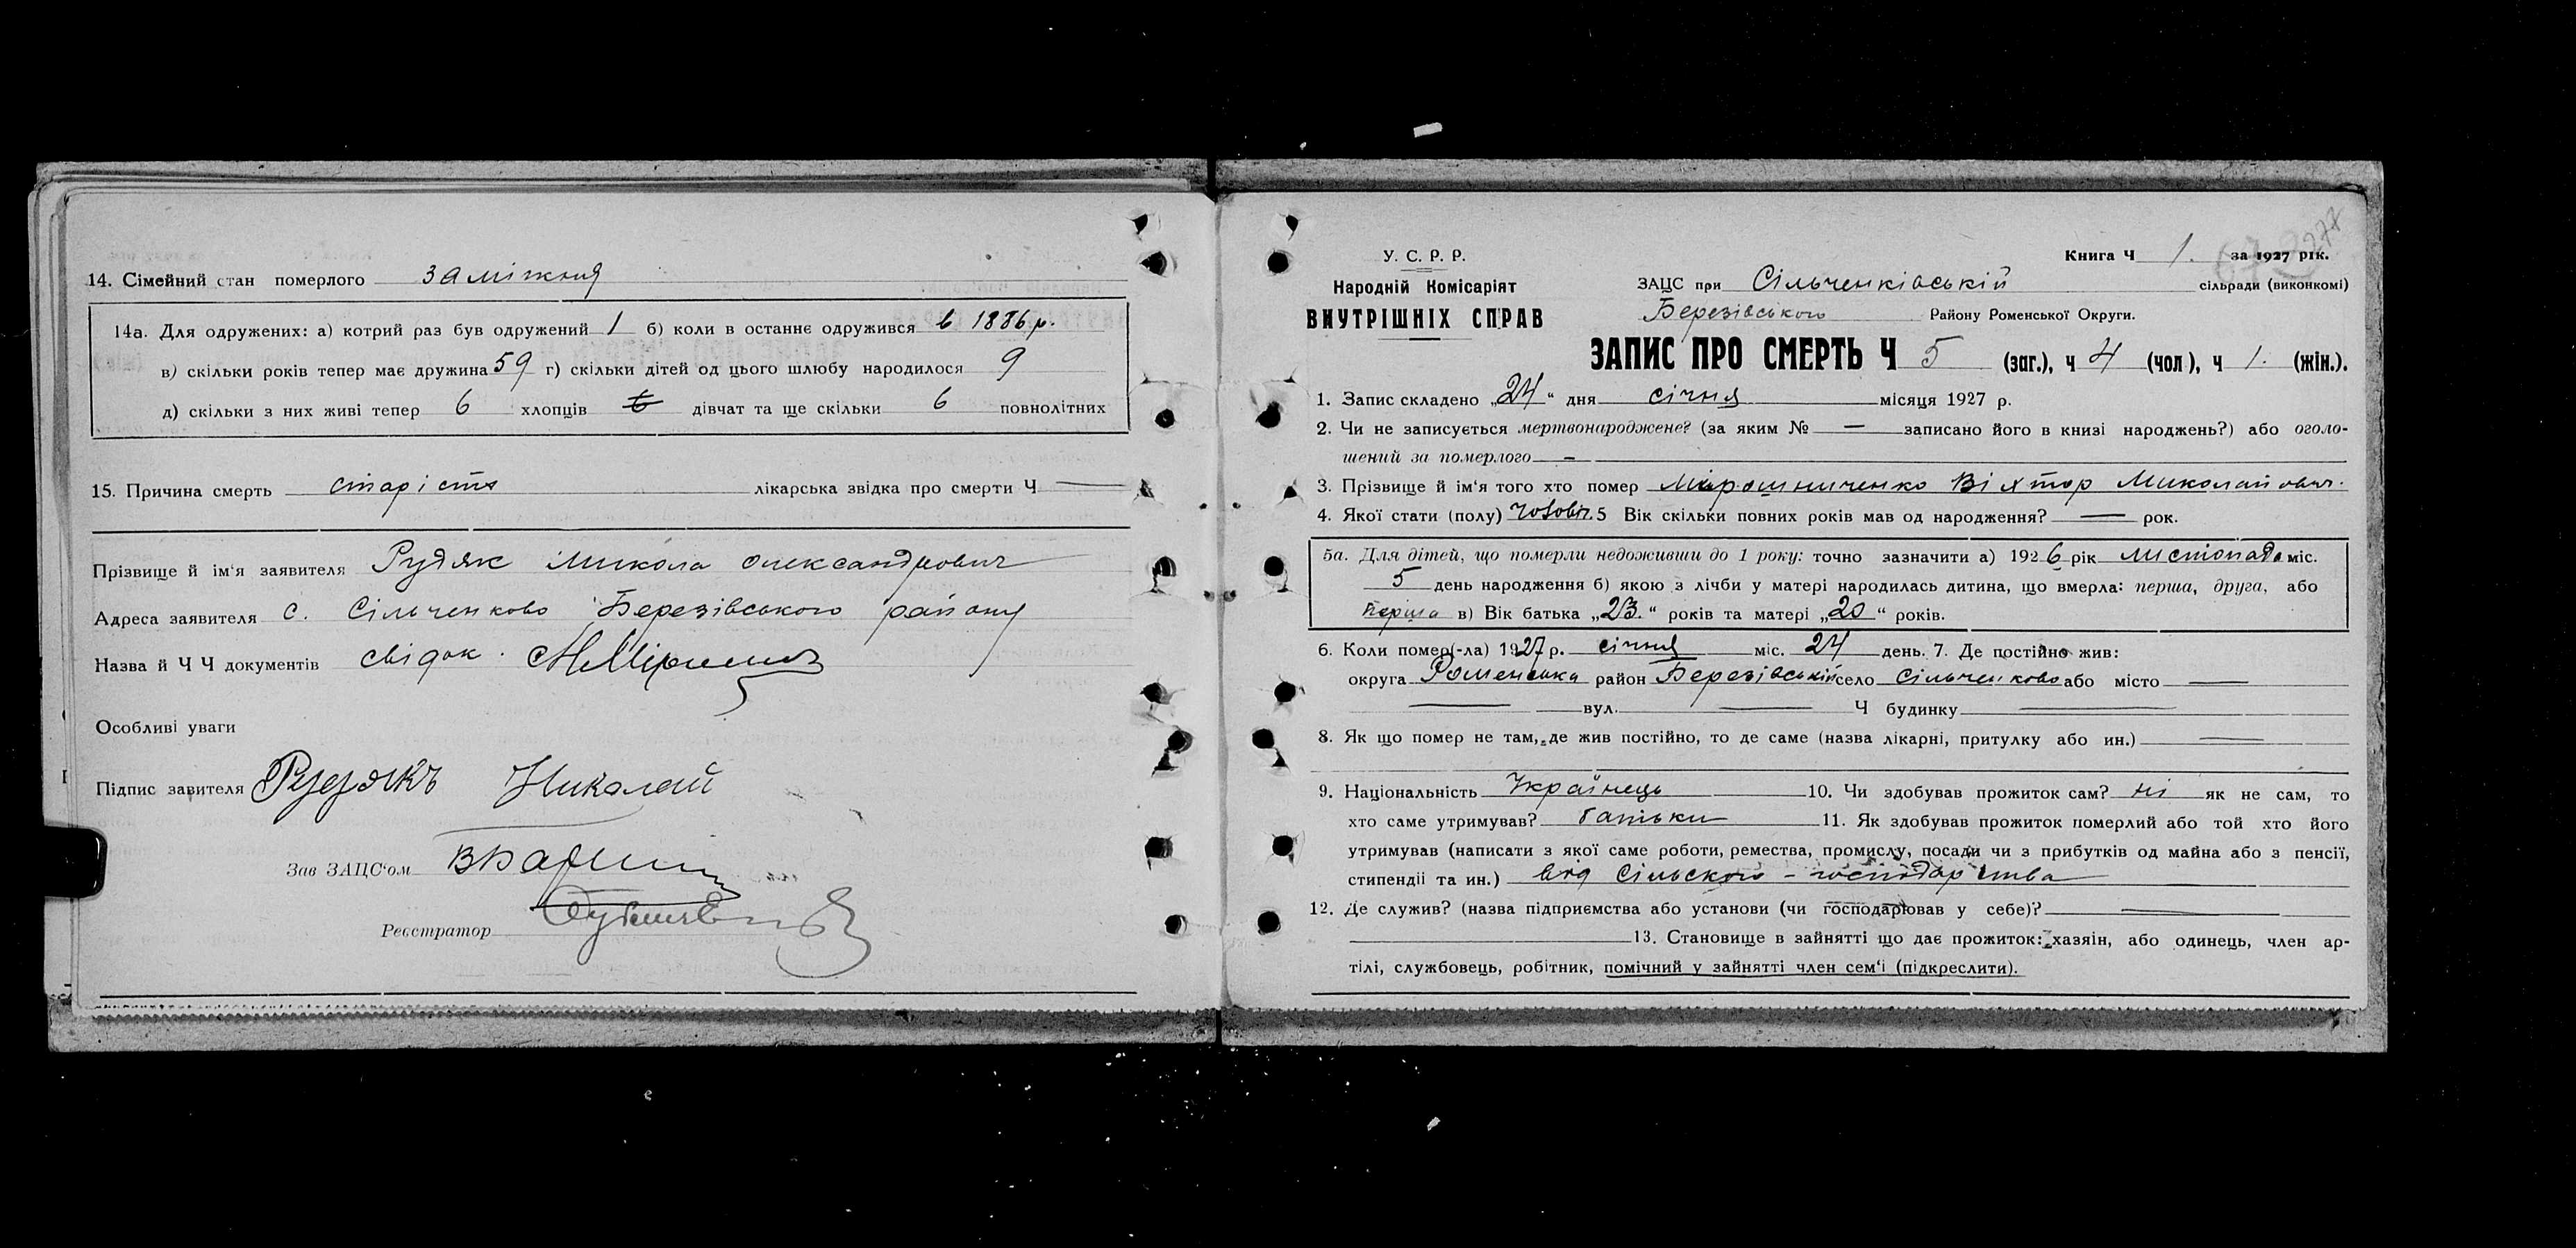 14. Сімейний стан померлого заміжня
14а. Для одружених: а) котрий раз був одружений 1 б) коли в останнє одружився в 1886 р.
в) скільки років тепер має дружина 59 г) скільки дітей од цього шлюбу народилося 9
д) скільки з них живі тепер 6 хлопців 6 дівчат та ще скільки 6 повнолітних
15. Причина смерть старість лікарська звідка про смерти Ч —
Прізвище й ім'я заявителя Рудяк Микола Олександрович
Адреса заявителя с. Сільченково Березівського району
Назва й Ч Ч документів свідок.
Особливі уваги
Підпис завителя Рудякъ Николай
Зав ЗАЦС'ом
Реєстратор
277
У. С. Р. Р.
Народній Комісаріят
ВНУТРІШНІХ СПРАВ
Книга Ч 1. за 1927 рік.
ЗАЦС при Сільченківській сільради (виконкомі)
Березівського Району Роменської Округи.
ЗАПИС ПРО СМЕРТЬ Ч 5 (заг.), ч 4 (чол), ч 1. (жін.).
1. Запис складено „24" дня січня місяця 1927 р.
2. Чи не записується мертвонароджене? (за яким № — записано його в книзі народжень?) або оголо-
шений за померлого —
3. Прізвище й ім'я того хто помер Мірошниченко Віктор Миколайович.
4. Якої стати (полу) чоловіч. 5 Вік скільки повних років мав од народження? — рок.
5а. Для дітей, що померли недоживши до 1 року: точно зазначити а) 1926 рік листопада міс.
5 день народження б) якою з лічби у матері народилась дитина, що вмерла: перша, друга, або
перша в) Вік батька „23." років та матері „20" років.
6. Коли помер(-ла) 1927 р. січня міс. 24 день. 7. Де постійно жив:
округа Роменська район Березівський село Сільченково або місто —
— вул. — Ч будинку —
8. Як що помер не там, де жив постійно, то де саме (назва лікарні, притулку або ин.) —
9. Національність Українець 10. Чи здобував прожиток сам? ні як не сам, то
хто саме утримував? батьки 11. Як здобував прожиток померлий або той хто його
утримував (написати з якої саме роботи, ремества, промислу, посади чи з прибутків од майна або з пенсії,
стипендіі та ин.) від Сільского - господарства
12. Де служив? (назва підприємства або установи (чи господарював у себе)? —
13. Становище в зайнятті що дає прожиток: хазяін, або одинець, член ар-
тілі, службовець, робітник, помічний у зайнятті член сем'і (підкреслити).